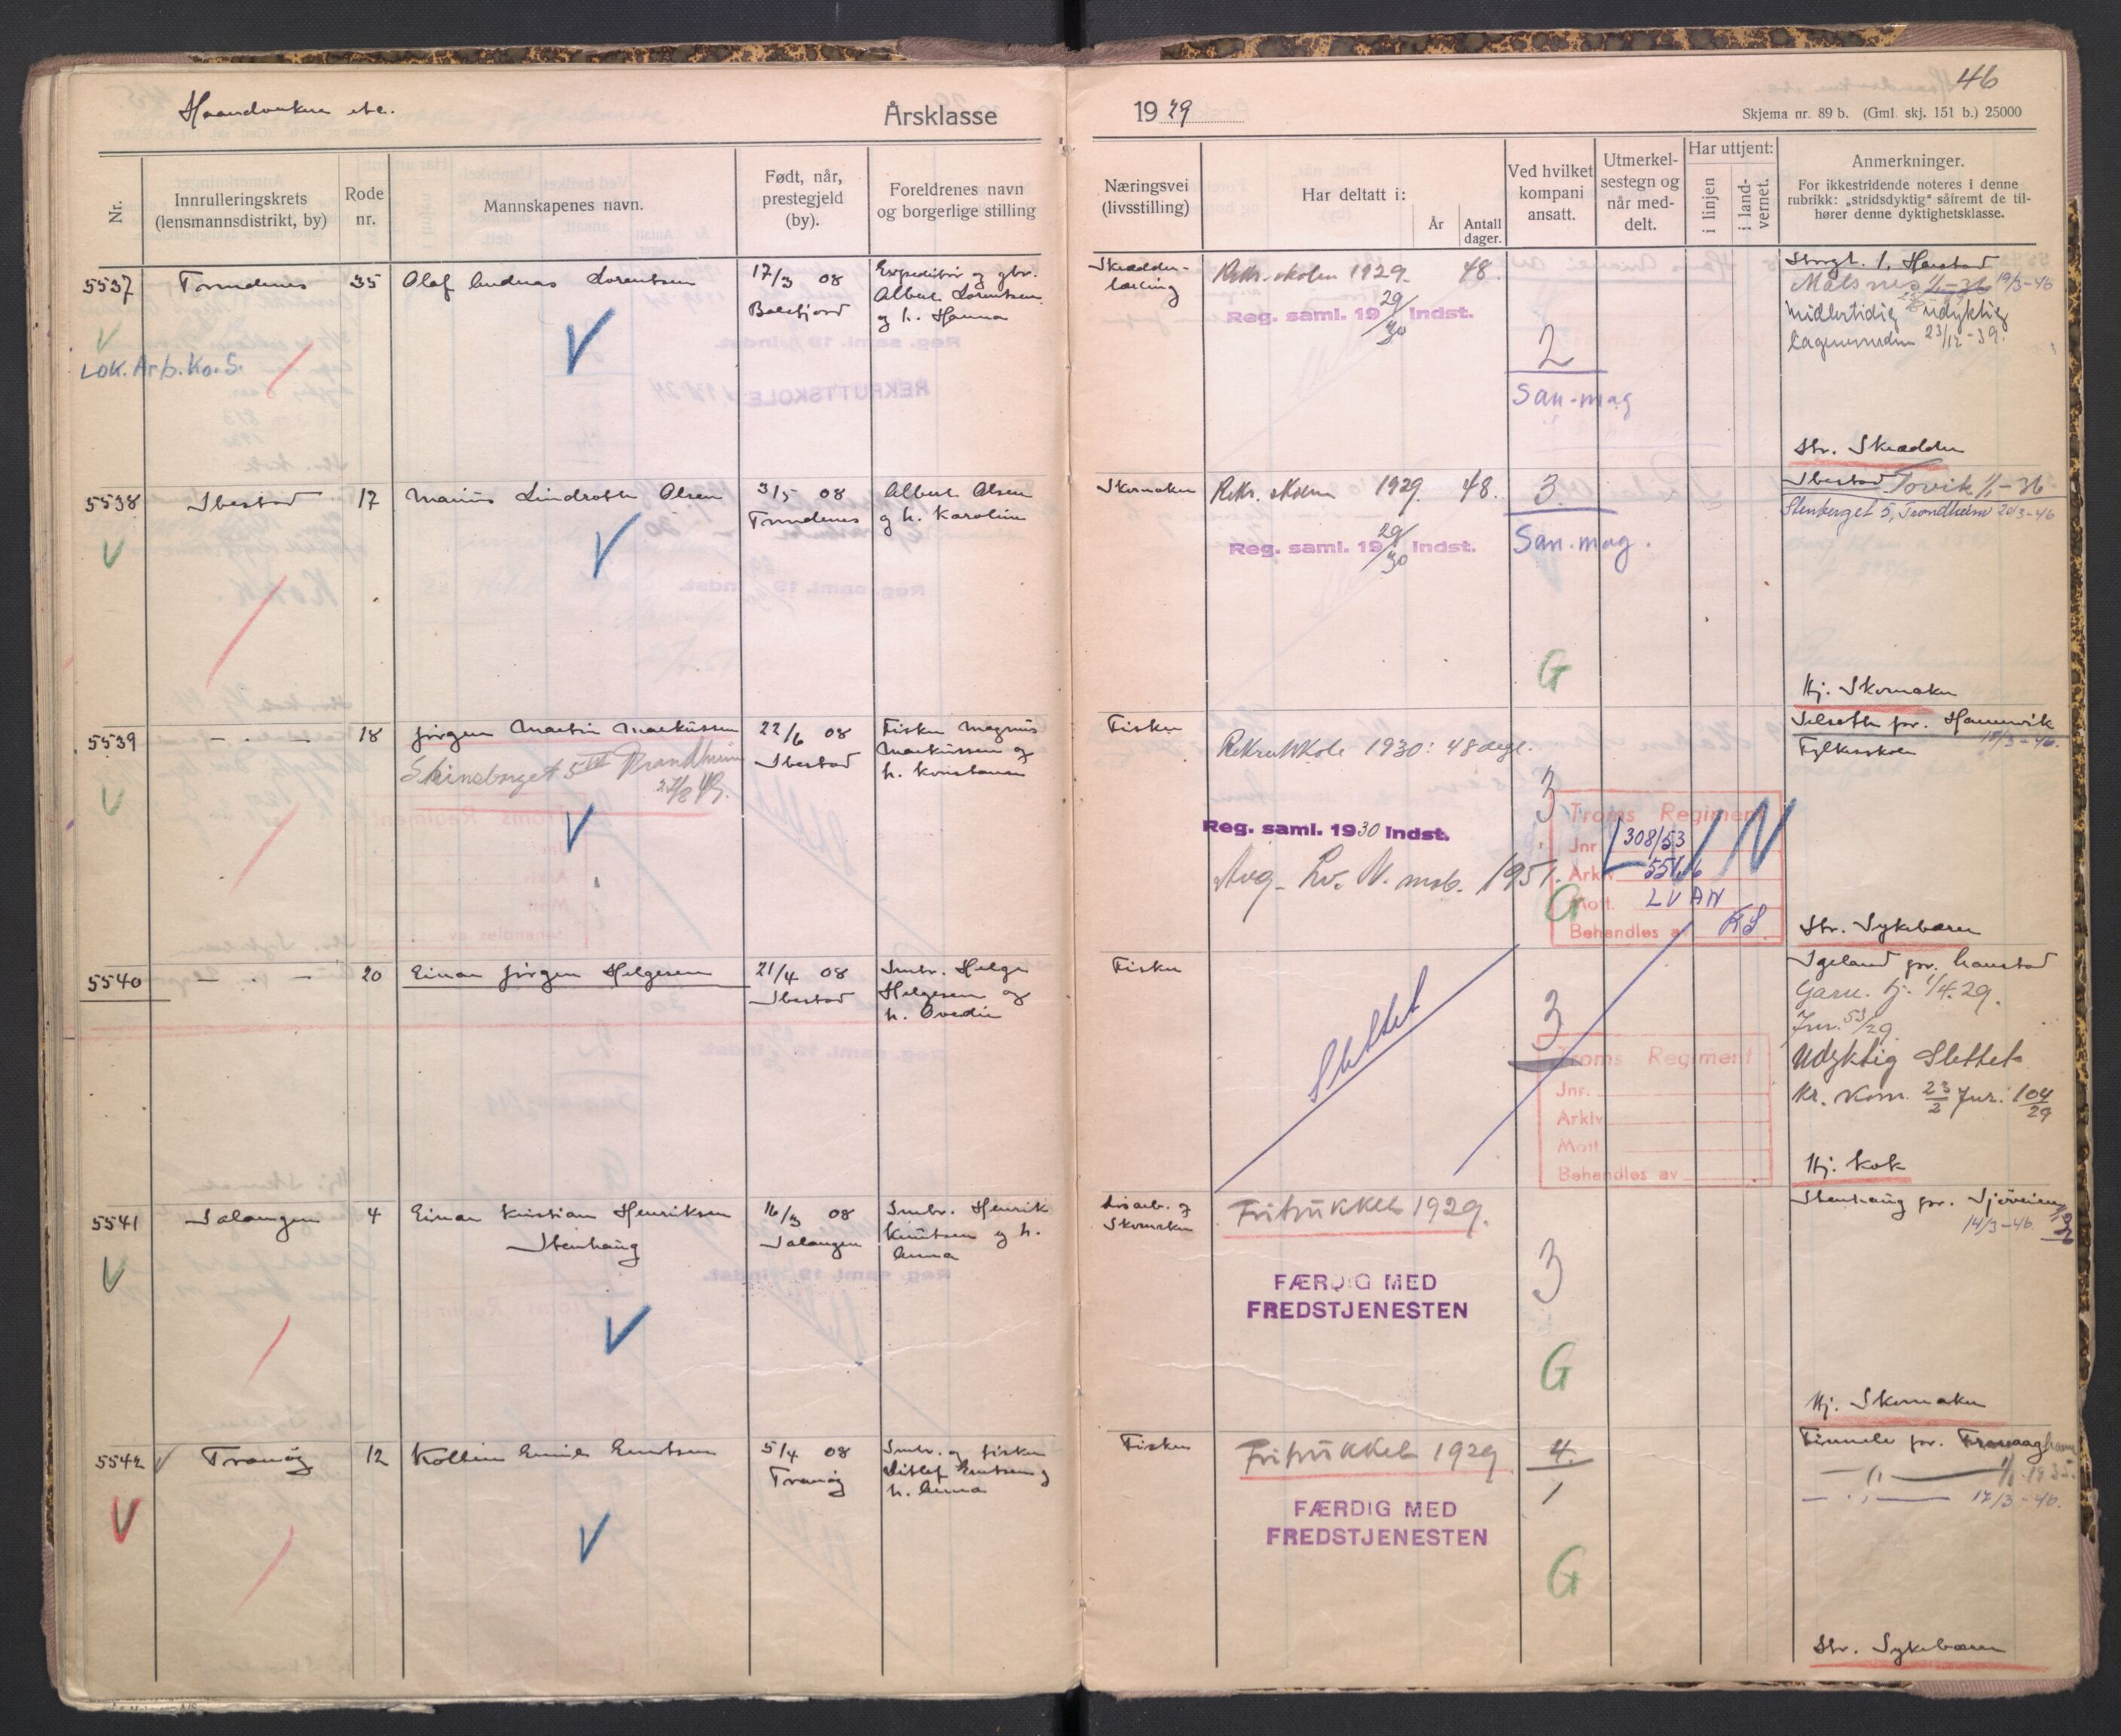 Haandverkere etc.
Årsklasse
1929
46
Skjema nr. 89 b. (Gml. skj. 151 b.) 25000
Nr.
Innrulleringskrets
(lensmannsdistrikt, by)
Rode
nr.
Mannskapenes navn.
Født, når,
prestegjeld
(by).
Foreldrenes navn
og borgerlige stilling
Næringsvei
(livsstilling)
Har deltatt i:
År
Antall
dager.
Ved hvilket
kompani
ansatt.
Utmerkel-
sestegn og
når med-
delt.
Har uttjent:
i linjen
i land-
vernet.
Anmerkninger.
For ikkestridende noteres i denne
rubrikk: „stridsdyktig“ såfremt de til-
hører denne dyktighetsklasse.
5537
Trondenes
35
Olaf Andreas Lorentsen
17/3 08
Balsfjord
Expeditør og gbr.
Albert Lorentsen
og h. Hanna
LOK. Arb. Ko. S.
Skrædder-
lærling
Rekr.skolen 1929. 48.
Reg. saml. 19 29/30 Indst.
2
San-mag
Storgt. 1, Harstad
Målsnes 1/1-36 19/3-46
Midlertidig udyktig
23/12-39.
Str. Skrædder
5538
Ibestad
17
Marius Lindrobth Olsen
3/5 08
Trondenes
Albert Olsen
og h. Karoline
Skomaker
Rekr. skolen 1929. 48.
Reg. saml. 19 29/30 Indst.
3.
San.mag.
G
Ibestad Tovik 1/1-36
Stenberget 5, Trondheim 20/3-46
Hj. Skomaker
5539
— . —
18
Jørgen Martin Markussen
Steinsberget 5 Trondheim
22/6 08
Ibestad
Fisker Magnus
Markussen og
h. Konstanse
Fisker
Rekruttskole 1930: 48 dage.
Reg. saml. 1930 Indst.
Avg. Lv. N. mob. 1951.
3
G
Troms Regiment
Jnr 308/53
Arkiv
Mott. LVAN
Behandles av
N
Selseth pr. Hamnvik
18/3-46.
Fylkesskolen
Str. Sykebærer
5540
— . —
20
Einar Jørgen Helgesen
21/4 08
Ibestad
Smbr. Helge
Helgesen og
h. Ovedie
Fisker
Slettet
3
Troms Regiment
Jnr.
Arkiv
Mott
Behandles av
Igeland pr. Harstad
Garn. tj. 1/4.29.
Jnr. 53/29
Udyktig Slettet
Kr. Kom. 23/2 Jnr: 104/29
Hj. Kok
5541
Salangen
4
Einar Kristian Henriksen
Stenhaug
16/3 08
Salangen
Smbr. Henrik
Knutsen og h.
Anna
Løsarb. og
Skomaker
Fritrukket 1929.
FÆRDIG MED
FREDSTJENESTEN
3
G
Stenhaug pr. Sjøveien
14/3-46
Hj. Skomaker
5542
Tranøy
12
Kollin Emil Enertsen
5/4 08
Tranøy
Smbr. og fisker
Ditlef Enertsen og
h. Anna
Fisker
Fritrukket 1929
FÆRDIG MED
FREDSTJENESTEN
4.
1
G
— „ — 1/1 1935.
— „ — 17/3-46.
Str. Sykebærer